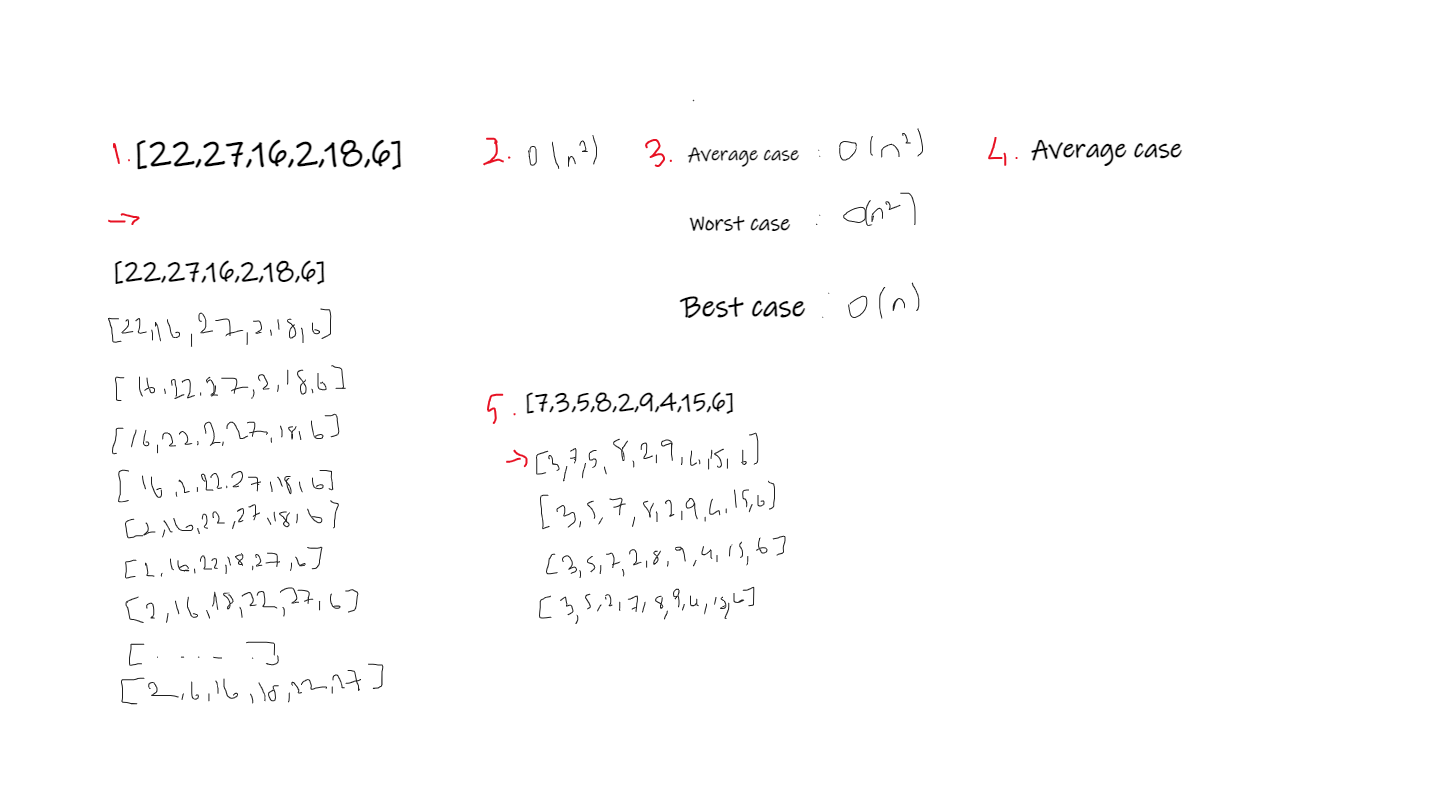 1. [22,27,16,2,18,6]
→
[22,27,16,2,18,6]
[22,16,27,2,18,6]
[16,22,27,2,18,6]
[16,22,2,27,18,6]
[16,2,22,27,18,6]
[2,16,22,27,18,6]
[2,16,22,18,27,6]
[2,16,18,22,27,6]
[.....]
[2,6,16,18,22,27]
2. O(n²)
3. Average case : O(n²)
Worst case : O(n²)
Best case : O(n)
4. Average case
5. [7,3,5,8,2,9,4,15,6]
→ [3,7,5,8,2,9,4,15,6]
[3,5,7,8,2,9,4,15,6]
[3,5,7,2,8,9,4,15,6]
[3,5,2,7,8,9,4,15,6]